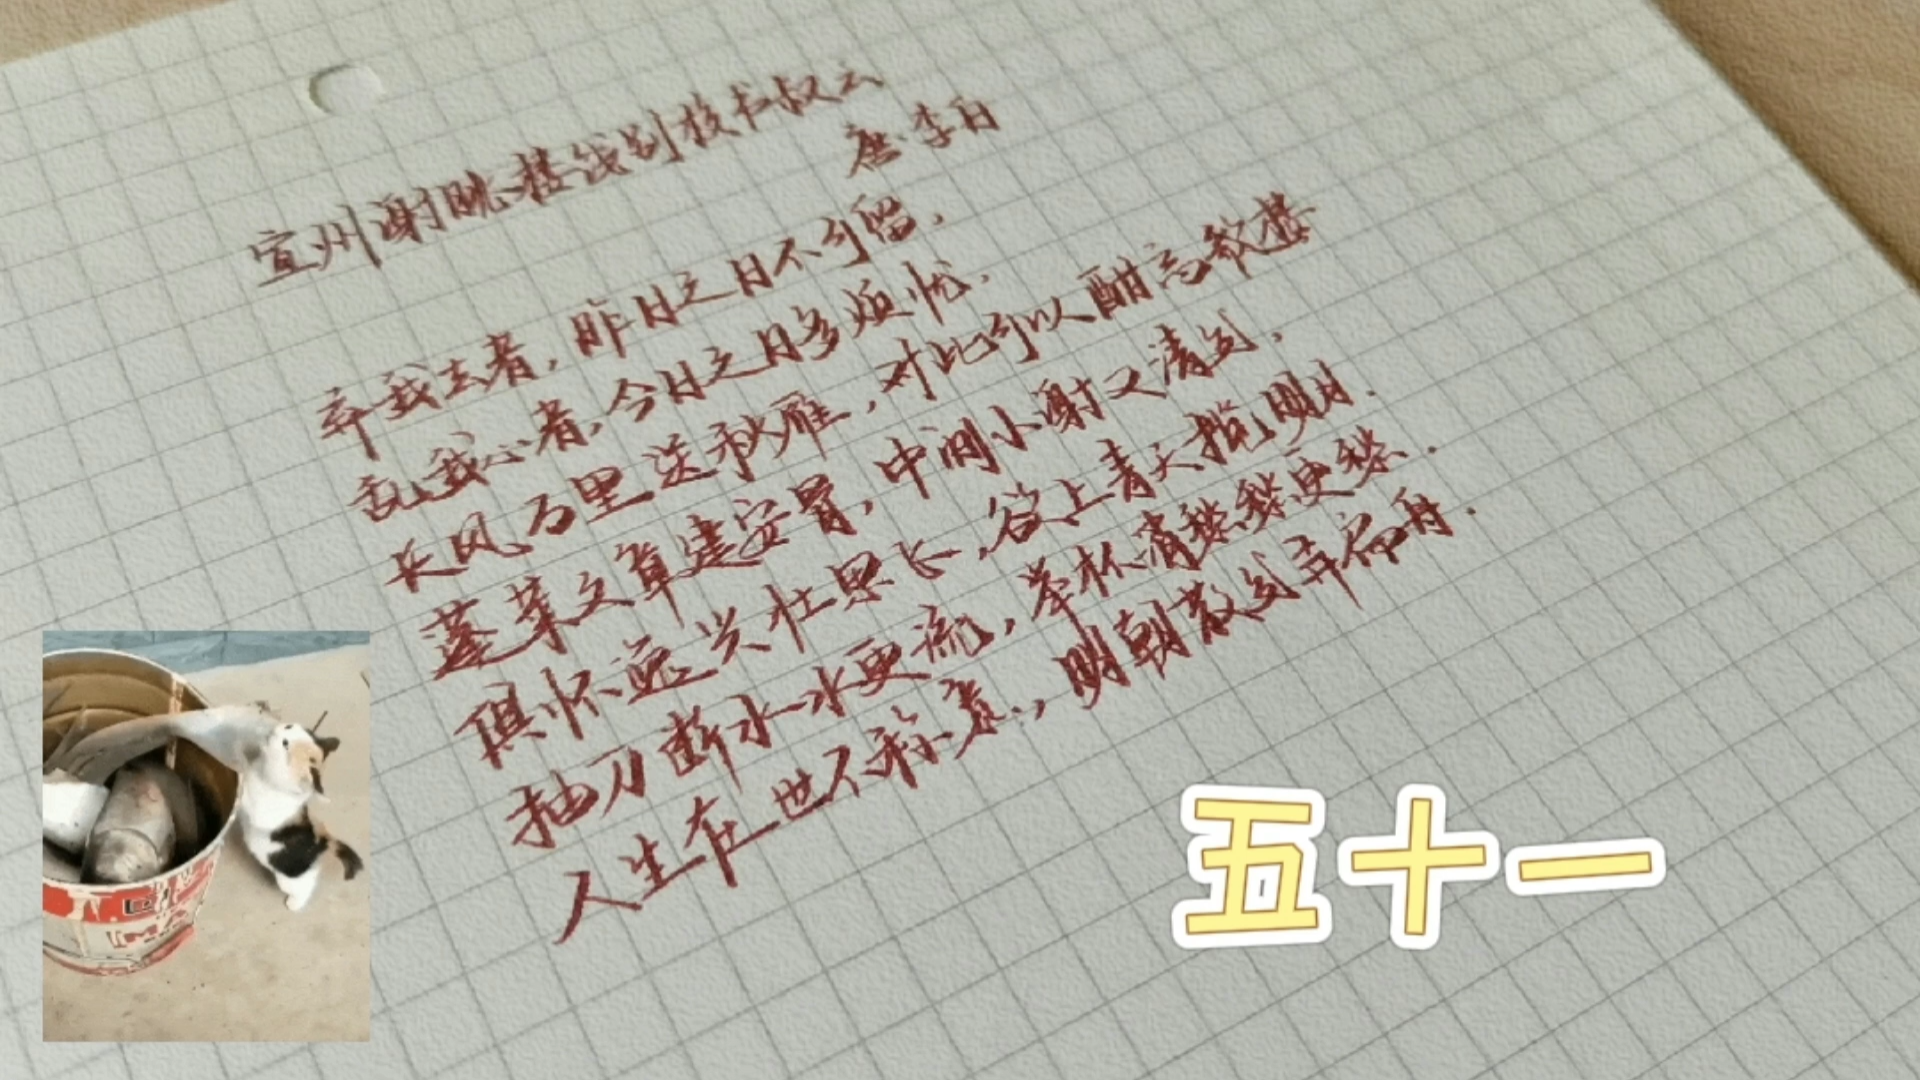 宣州谢朓楼饯别校书叔云
唐·李白
弃我去者，昨日之日不可留，
乱我心者，今日之日多烦忧.
长风万里送秋雁，对此可以酣高教楼
蓬莱文章建安骨，中间小谢又清发，
俱怀逸兴壮思长，欲上青天揽明月.
抽刀断水水更流，举杯消愁愁更愁.
人生在世不称意，明朝散发弄扁舟.
五十一